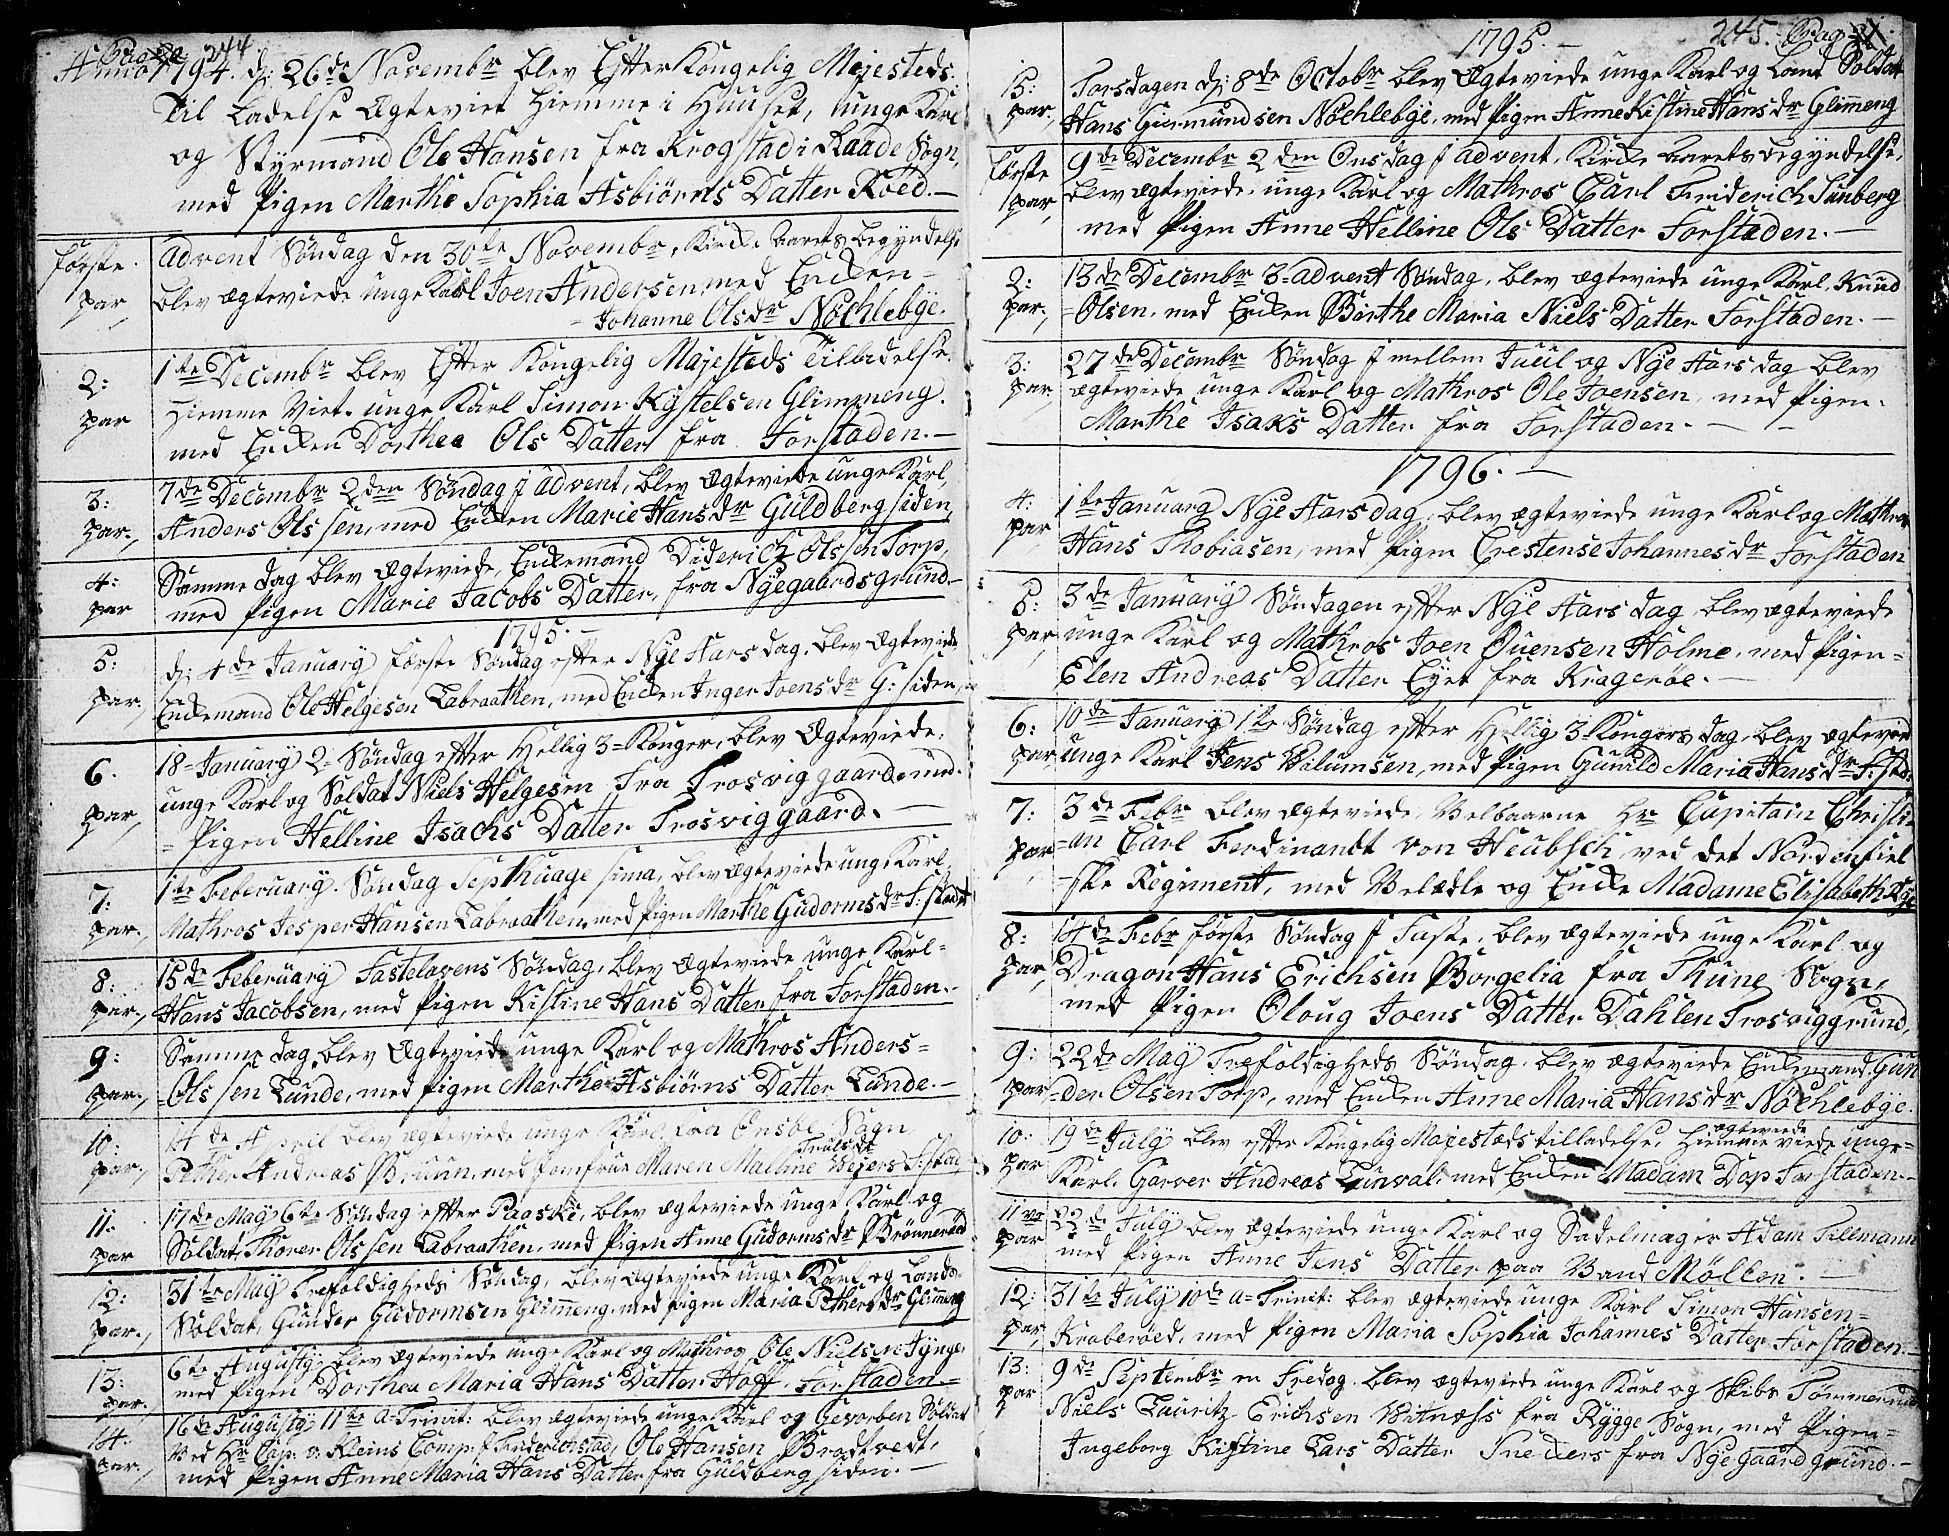 Pag 244
Anno 1794. d; 26de Novembr blev Efter Kongelig Mejesteds
Til Ladelse Ægteviet hiemme i Huuset, unge Karl
og Styrmand Ole Hansen fra Krogstad i Raade Sogn,
med Pigen Marthe Sophia Asbiørns Datter Röed.
første par Advent Søndag den 30te Novembr, Kircke Aarets begyndelse
blev ægteviede unge Karl Joen Andersen, med Encken
Johanne Olsdr Nøchlebye.
2: par 1te Decembr blev Efter Kongelig Majesteds Tilladelse
hiemme Viet unge Karl Simon Kystelsen Glimmeng.
med Encken Dorthea Ols Datter fra Forstaden.
3: par, 7de Decembr 2den Søndag i Advent, blev Ægteviede unge Karl,
Anders Olssen, med Encken Marie Hansdr Guldbergsiden,
4: par Samme dag blev Ægteviede, Enckemand Diderich Olssen Torp,
med Pigen Marie Jacobs Datter, fra Nyegaardsgrund
1795.
5: par, d; 4de January første Søndag efter Nye Aars dag, blev Ægteviede
Enckemand Ole Helgesen Labraathen, med Encken Inger Joensdr G: siden,
6. par, 18 January 2 Søndag efter Hellig 3=Konger, blev Ægteviede,
unge Karl og Soldat Niels Helgesen Fra Trosviggaard med
Pigen Helline Isachs Datter Trosviggaard.
7: par., 1te Feberuary. Søndag Septhuagesima, blev Ægteviede unge Karl
Mathros Jesper Hansen Labraathen, med Pigen Marthe Gudormsdr F: stad
8: par., 15de Feberuary Fastelavens Søndag, blev Ægteviede unge Karl=
Hans Jacobsen, med Pigen Kistine Hans Datter fra Forstaden.
9: par., Samme dag blev Ægteviede unge Karl og Mathros Anders=
=Olssen Lunde, med Pigen Marthe Asbiørns Datter Lunde.
10: par, 14de April blev ægteviede unge Karl fra Onsøe Sogn
Pether Andreas Bruun, med Jomfrue Maren Malline Trulsdr Beyers F: stad
11: par 17de May 6te Søndag efter Paaske, blev ægteviede unge Karl og
Soldat, Thorer Olssen Labraathen, med Pigen Anne Gudormsdr Brönnerød
12: par., 31te May Trefoldigheds Søndag, blev ægteviede unge Karl og Land
Soldat, Gunder Gudormsen Glimmeng, med Pigen Maria Pethersdr Glimeng
13: par. 6te Augusty blev ægteviede unge Karl og Mathros Ole Nielsen Tynge,
med Pigen Dorthea Maria Hans Datter Hoff. Forstaden.
14. par, 16de Augusty 11te a=Trinit: blev ægteviede unge Karl og Gevorben Soldat
ved Hr Cap: v: Kleins Comp: i Friderichstad, Ole Hansen Brodtvedt,
med Pigen Anne Maria Hans Datter fra Guldbergsiden.
245. Pag
1795.
15: par, Torsdagen d; 8de Octobr blev Ægteviede unge Karl og Land Soldat
Hans Giermundsen Nøchlebye, med Pigen Anne Kistine Hansdr Glimeng
første par, 9de Decembr 2den Onsdag i Advent, Kircke Aarets begyndelse,
blev ægteviede, unge Karl og Mathros Carl Friderich Sunberg
med Pigen Anne Helline Ols Datter Forstaden.
2: par., 13de Decembr 3=advent Søndag, blev ægteviede unge Karl, Knud
=Olsen, med Encken Barthe Maria Niels Datter Forstaden.
3: par, 27de Decembr Søndag i mellem Juul og Nye Aars dag blev
ægteviede unge Karl og Mathros Ole Joensen, med Pigen
Marthe Isaks Datter fra Forstaden.
1796.
4: par, 1te January Nye Aarsdag, blev ægteviede unge Karl og Mathros
Hans Thobiasen, med Pigen Crestense Johannesdr Forstaden
5: par, 3de January Søndagen efter Nye Aars dag, blev ægteviede
unge Karl og Mathros Joen Ouensen Holme, med Pigen=
Elen Andreas Datter Eyer fra Kragerøe.
6: par, 10de January 1te Søndag efter Hellig 3 Kongers dag, blev ægteviede
unge Karl Jens Wilumsen, med Pigen Gunild Maria Hansdr F: stad
7: par 3de Febr blev ægteviede, Velbaarne Hr Capitain Christi
=an Carl Ferdinandt von Heubsch, ved det Nordenfiel
=ske Regiment, med Velædle og Encke Madame Elisabeth
8: par, 14de Febr første Søndag i Faste, blev ægteviede unge Karl og
Dragon Hans Erichsen Borgelia fra Thune Sogn,
med Pigen Oloug Joens Datter Dahlen Trosviggrund,
9: par 22de May Trefoldigheds Søndag blev ægteviede Enkemand Gun
=der Olsen Torp, med Encken Anne Maria Hansdr Nøchlebye.
10: par 19de July blev efter Kongelig Majestæds tilladelse, hiemme ægteviede viede unge=
Karl, Garver Andreas Tunval, med Encken Madam Dop Forstaden.
11ve par 22de July blev ægteviede unge Karl og Sadelmager Adam Tillmann
med Pigen Anne Jens Datter paa Vand Møllen.
12: par, 31te July 10de a=Trinit: blev ægteviede unge Karl Simon Hansen=
Kraberøed, med Pigen Maria Sophia Johannes Datter Forstaden.
13: par 9de Septembr en Fredag blev ægteviede unge Karl og Skibs Tømmermand
Niels Lauritz Erichsen Vitnæss fra Rygge Sogn, med Pigen=
Ingeborg Kistine Lars Datter Sneckers fra Nyegaardgrund.